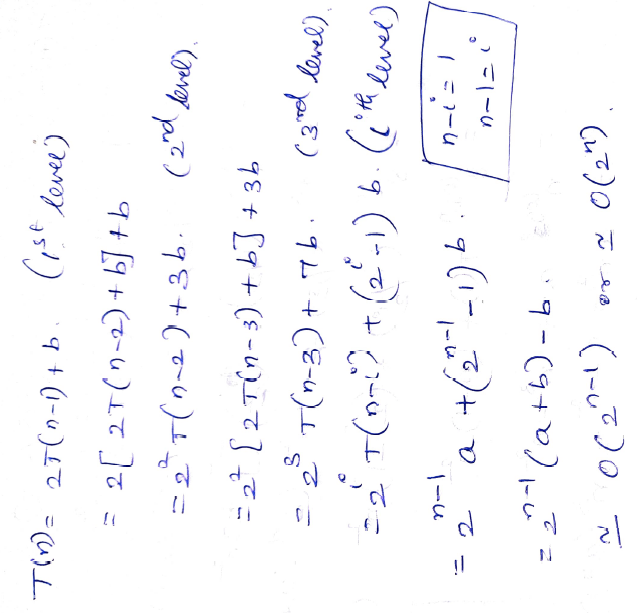 T(n) = 2T(n-1) + b. (1st level)
= 2[2T(n-2) + b] + b
= 2² T(n-2) + 3b. (2nd level).
= 2² [2T(n-3) + b] + 3b
= 2³ T(n-3) + 7b. (3rd level)
= 2^i T(n-i) + (2^i - 1) b. (i th level)
= 2^(n-1) a + (2^(n-1) - 1) b.
n-i = 1
n-1 = i
= 2^(n-1) (a+b) - b.
≃ O(2^(n-1)) or ≃ O(2^n).